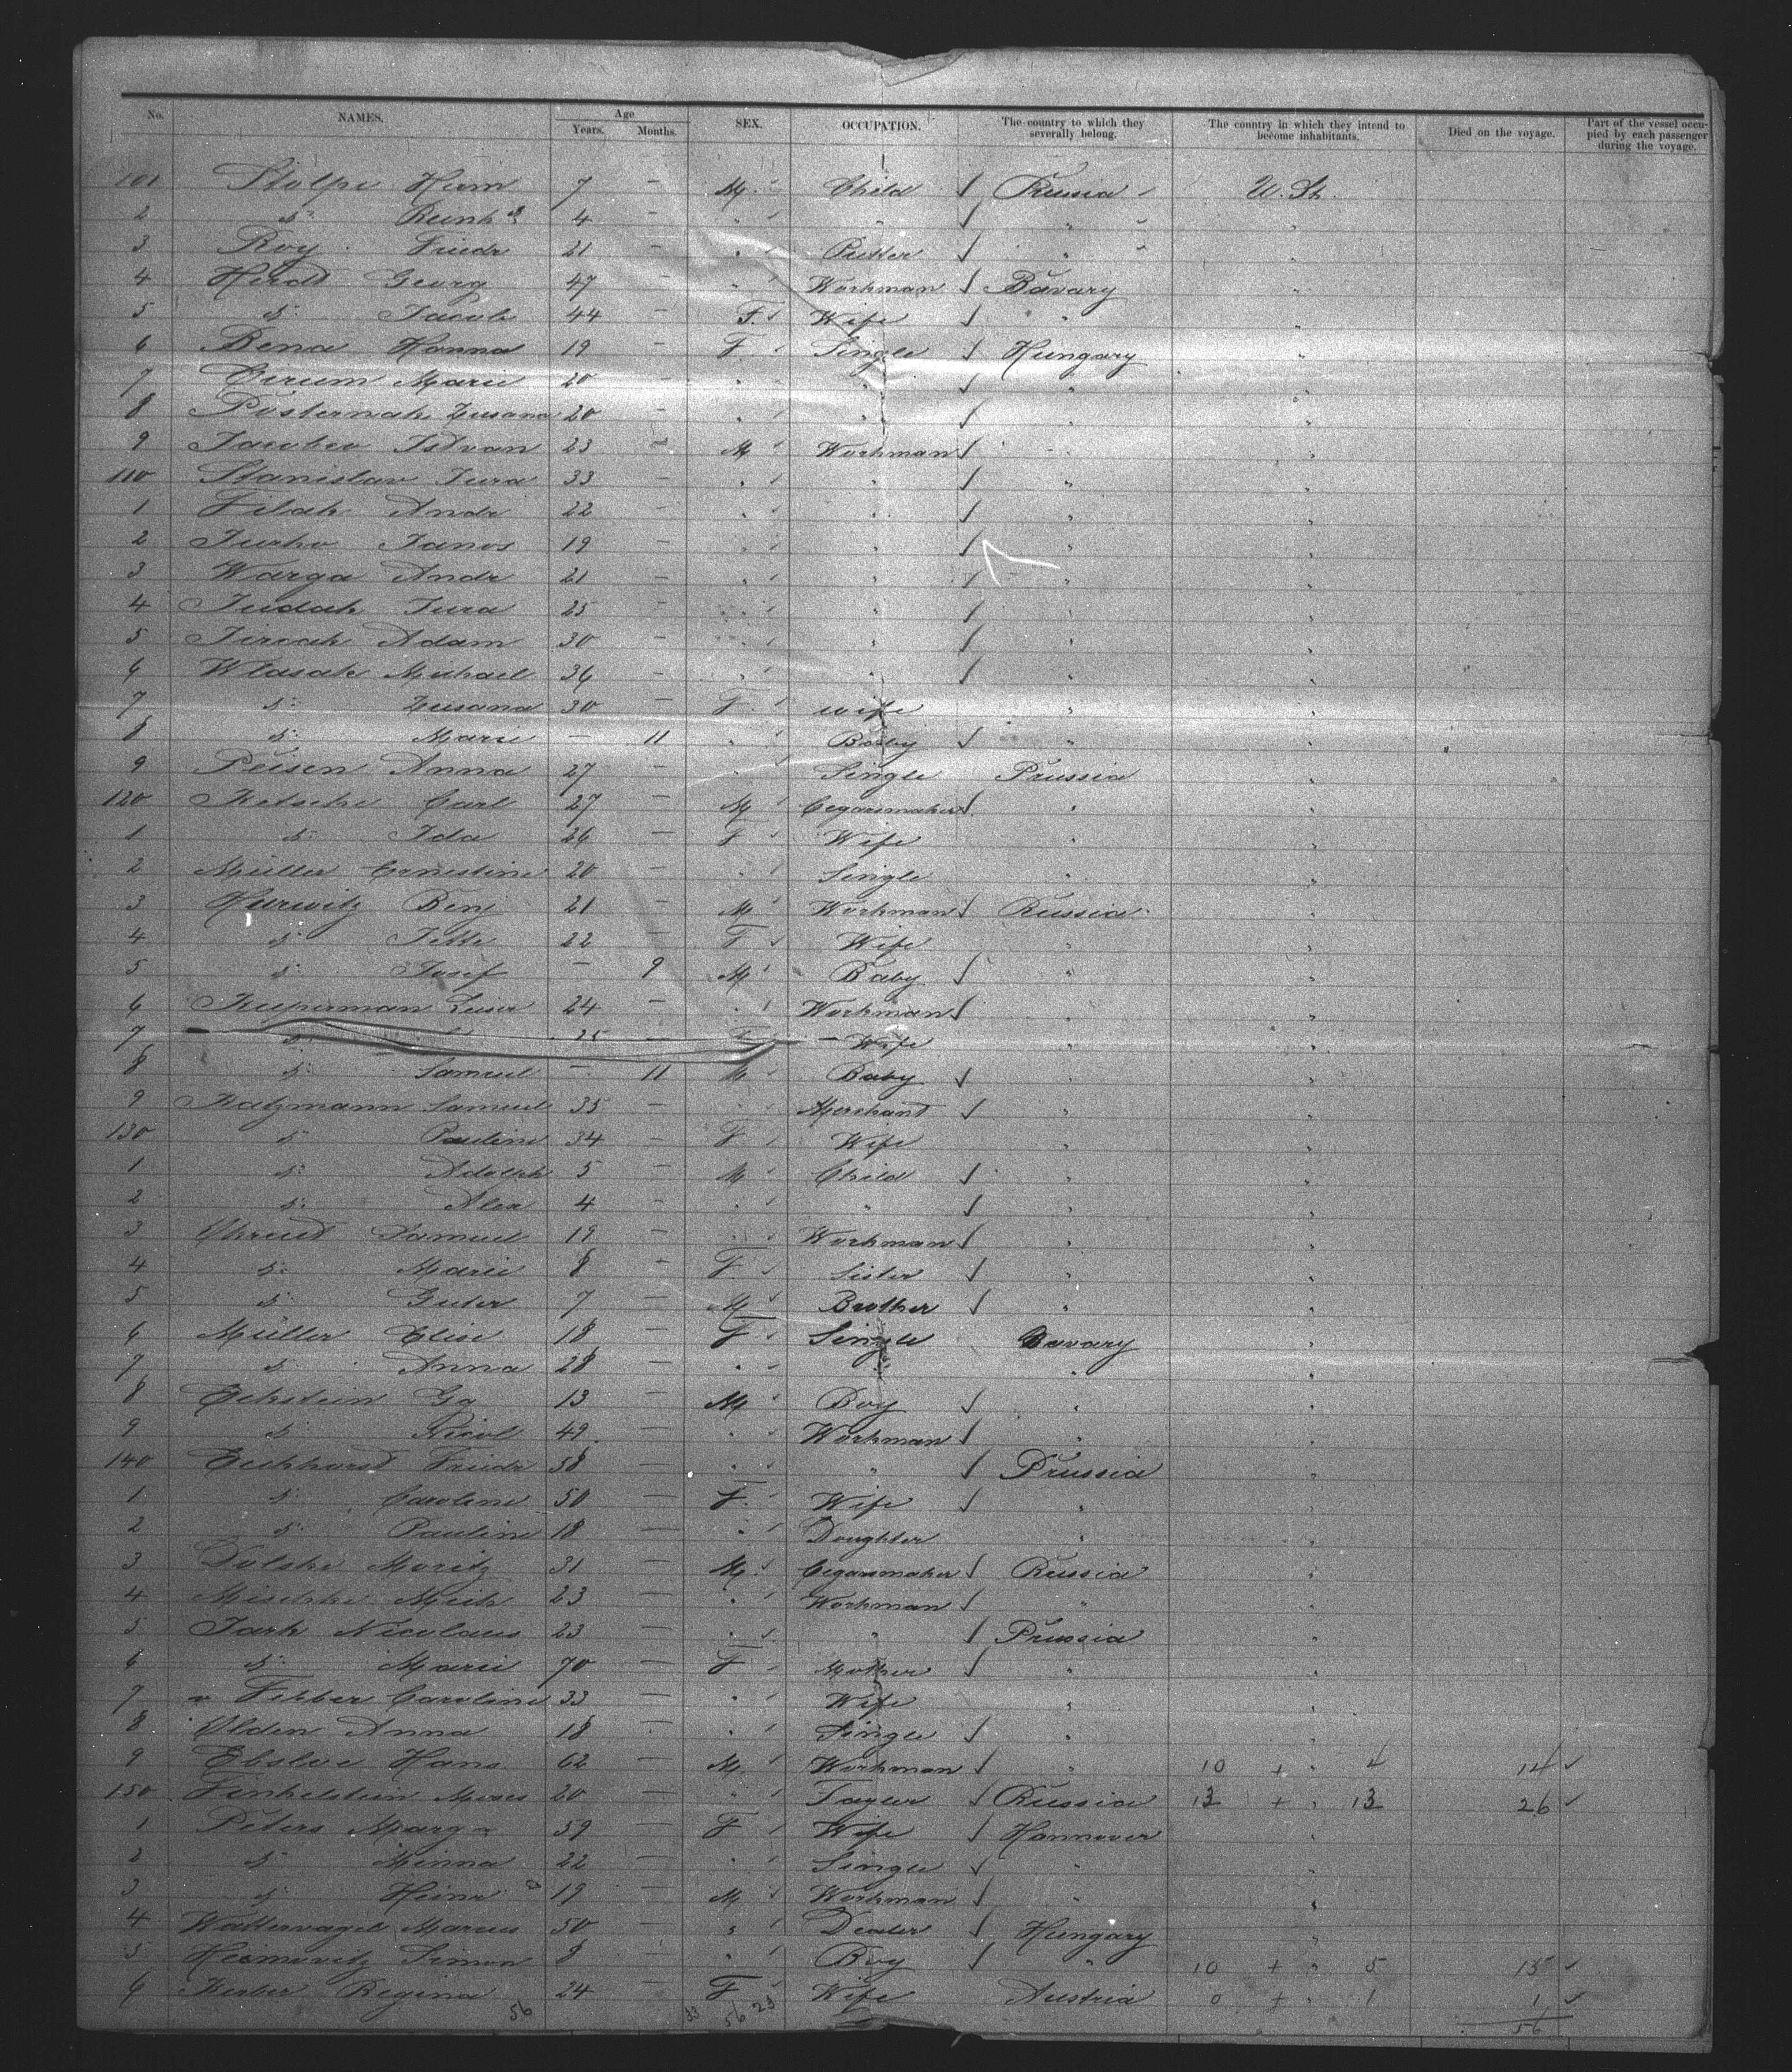 No. NAMES. Age Years. Months. SEX. OCCUPATION. The country to which they severally belong. The country in which they intend to become inhabitants. Died on the voyage. Part of the vessel occupied by each passenger during the voyage.
101 Stolpe Herm 7 — M. Child Russia U. St.
2 d: Reinh 4 — " " " "
3 Roy Friedr 21 — " " "
4 Herdt Georg 47 — " Workman Bavary "
5 d: Jacob 44 — F. Wife " "
6 Bena Hanna 19 — F. Single Hungary "
7 Marie 20 — " " " "
8 Posternak Zusana 20 — " " " "
9 Istvan 23 — M Workman " "
110 Stanislav Jura 33 — " " " "
1 Filak Andr 22 — " " " "
2 Jurko Janos 19 — " " " "
3 Warga Andr 21 — " " " "
4 Judak Jura 25 — " " " "
5 Adam 30 — " " " "
6 Wlasak Michael 36 — " " " "
7 d: Zusana 30 — F. wife " "
8 d: Marie — 11 " Baby " "
9 Peisen Anna 27 — " Single Prussia "
120 Carl 27 — M Cegarsmaker " "
1 d: Ida 26 — F Wife " "
2 Müller Ernestine 20 — " Single " "
3 Hurwitz Benj 21 — M Workman Russia "
4 d: Jette 22 — F Wife " "
5 d: Josef — 9 M Baby " "
6 Kuperman Leiser 24 — " Workman " "
7 d: 25 — F — Wife " "
8 d: Samuel — 11 M Baby " "
9 Katzmann Samuel 35 — " Merchant " "
130 d: Pauline 34 — F Wife " "
1 d: Adolph 5 — M Child " "
2 d: Alex 4 — " " " "
3 Samuel 19 — " Workman " "
4 d: Marie 8 — F. Sister " "
5 d: Guter 7 — M Brother " "
6 Müller Elise 18 — F Single Bavary "
7 d: Anna 28 — " " " "
8 Eckstein Gg 13 — M Boy " "
9 d: Nicol 49 — " Workman " "
140 Eckhardt Friedr 58 — " " Prussia "
1 d: Caroline 50 — F. Wife " "
2 d: Pauline 18 — " Doughter " "
3 Dolske Moritz 31 — M. Cegarsmaker Russia "
4 Mischke Mich 23 — " Workman " "
5 Jark Nicolaus 23 — " " Prussia "
6 d: Marie 70 — F Mother " "
7 v Caroline 33 — " Wife " "
8 Olden Anna 18 — " Single " "
9 Hans 62 — M Workman " 10 + " 4 14
150 Finkelstein Moses 20 — " Tayler Russia 13 + " 13 26
1 Peters Marg 59 — F Wife Hannover "
2 d: Minna 22 — " Single " "
3 d: Heinr 19 — M Workman " "
4 Marcus 50 — " Dealer Hungary "
5 Simon 8 — " Boy " 10 + " 5 15
6 Regina 24 — F Wife Austria 0 + " 1 1
56 33 56 23 56